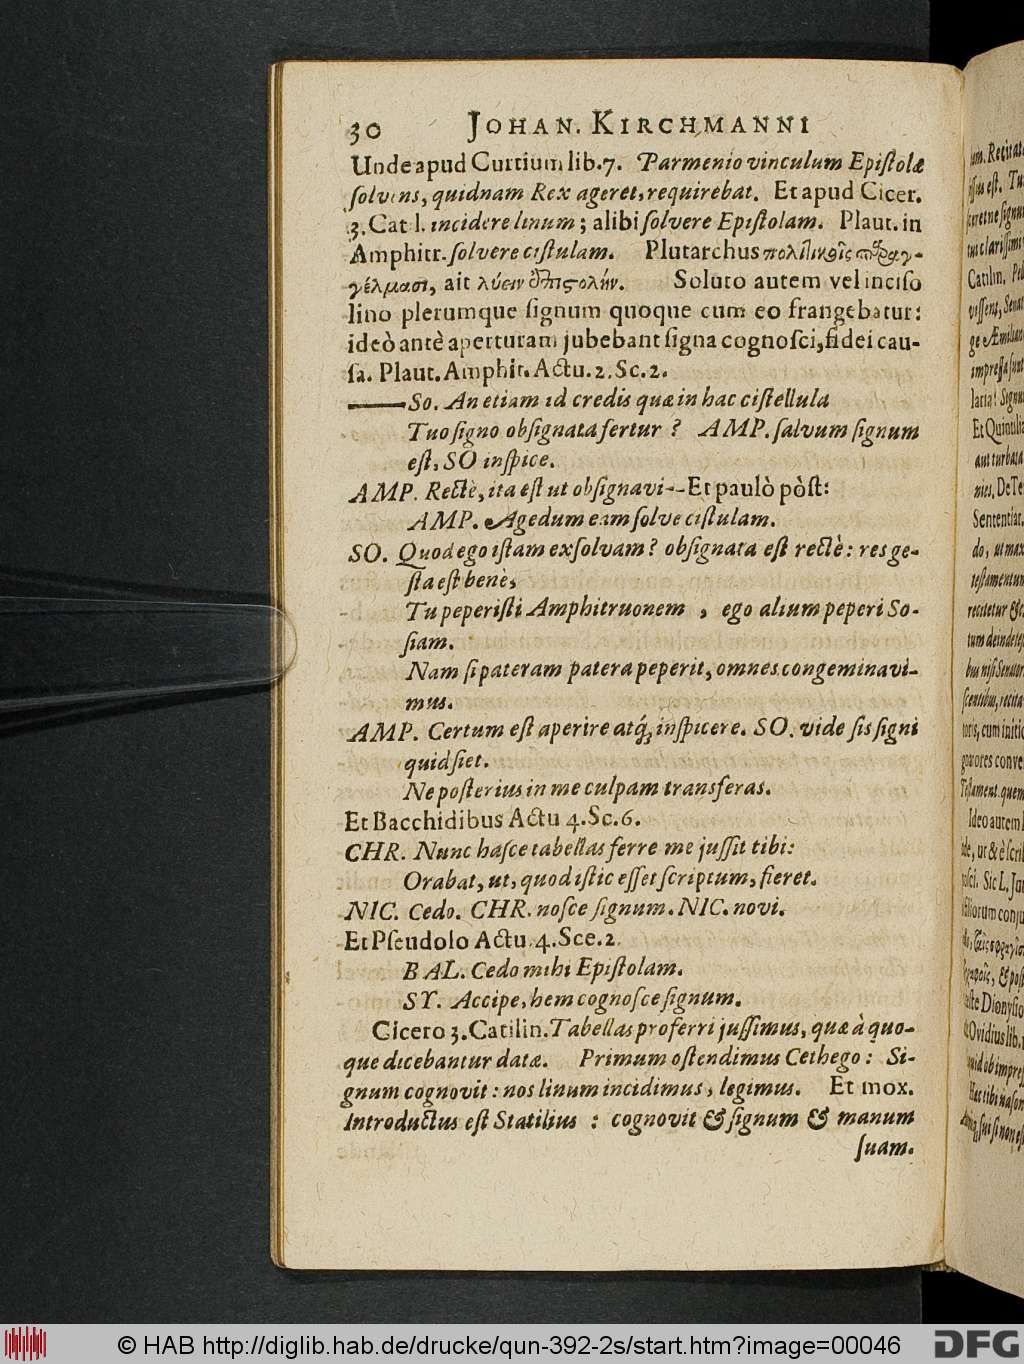 30 JOHAN. KIRCHMANNI
Unde apud Curtium lib. 7. Parmenio vinculum Epiſtolæ
ſolvens, quidnam Rex ageret, requirebat. Et apud Cicer.
3. Cat l. incidere linum; alibi ſolvere Epiſtolam. Plaut. in
Amphitr. ſolvere ciſtulam. Plutarchus πολιτικοῖς παραγ-
γέλμασι, ait λύειν ἐπιστολήν. Soluto autem vel inciſo
lino plerumque ſignum quoque cum eo frangebatur:
ideò antè aperturam jubebant ſigna cognoſci, fidei cau-
ſa. Plaut. Amphit. Actu. 2. Sc. 2.
—— So. An etiam id credis quæ in hac ciſtellula
Tuo ſigno obſignata fertur? AMP. ſalvum ſignum
eſt, SO inſpice.
AMP. Rectè, ita eſt ut obſignavi-- Et paulò pòſt:
AMP. Agedum eam ſolve ciſtulam.
SO. Quod ego iſtam exſolvam? obſignata eſt rectè: res ge-
ſta eſt benè,
Tu peperiſti Amphitruonem, ego alium peperi So-
ſiam.
Nam ſi pateram patera peperit, omnes congeminavi-
mus.
AMP. Certum eſt aperire atq́; inſpicere. SO. vide ſis ſigni
quid ſiet.
Ne poſterius in me culpam transferas.
Et Bacchidibus Actu 4. Sc. 6.
CHR. Nunc haſce tabellas ferre me juſſit tibi:
Orabat, ut, quod iſtic eſſet ſcriptum, fieret.
NIC. Cedo. CHR. noſce ſignum. NIC. novi.
Et Pſeudolo Actu. 4. Sce. 2.
BAL. Cedo mihi Epiſtolam.
SY. Accipe, hem cognoſce ſignum.
Cicero 3. Catilin. Tabellas proferri juſſimus, quæ à quo-
que dicebantur datæ. Primum oſtendimus Cethego: Si-
gnum cognovit: nos linum incidimus, legimus. Et mox.
Introductus eſt Statilius: cognovit & ſignum & manum
ſuam.
© HAB http://diglib.hab.de/drucke/qun-392-2s/start.htm?image=00046
DFG